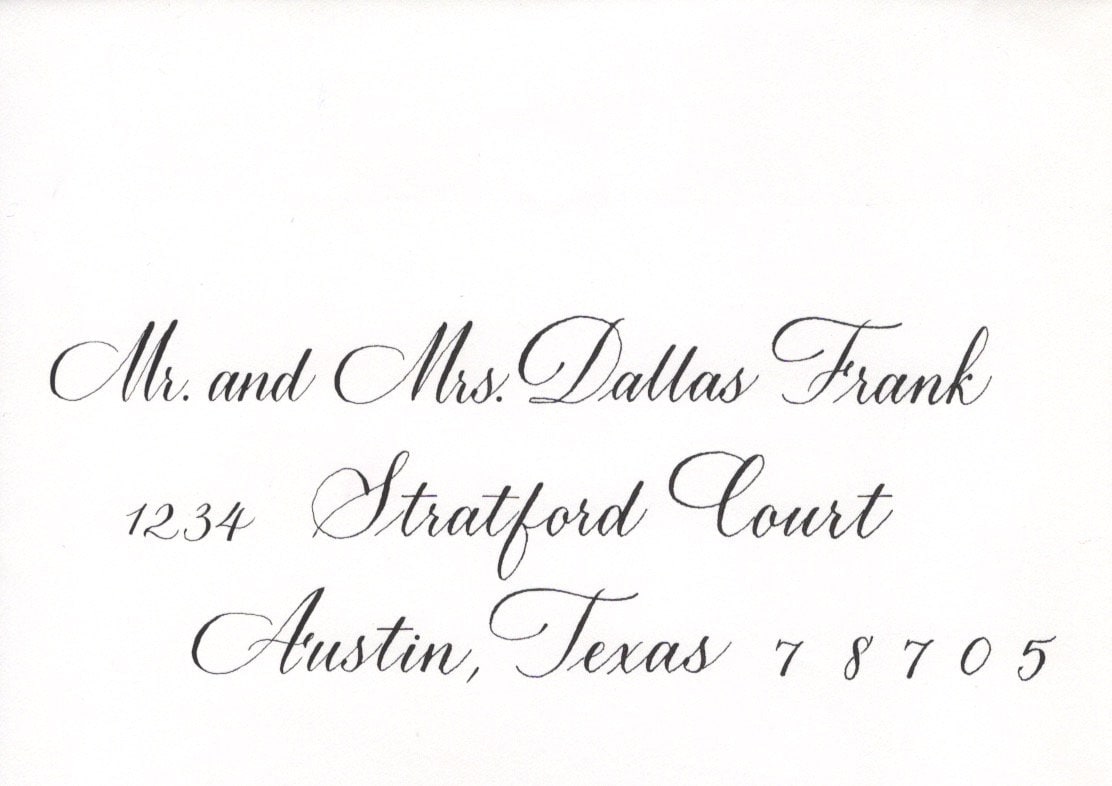 Mr. and Mrs. Dallas Frank
1234 Stratford Court
Austin, Texas 78705